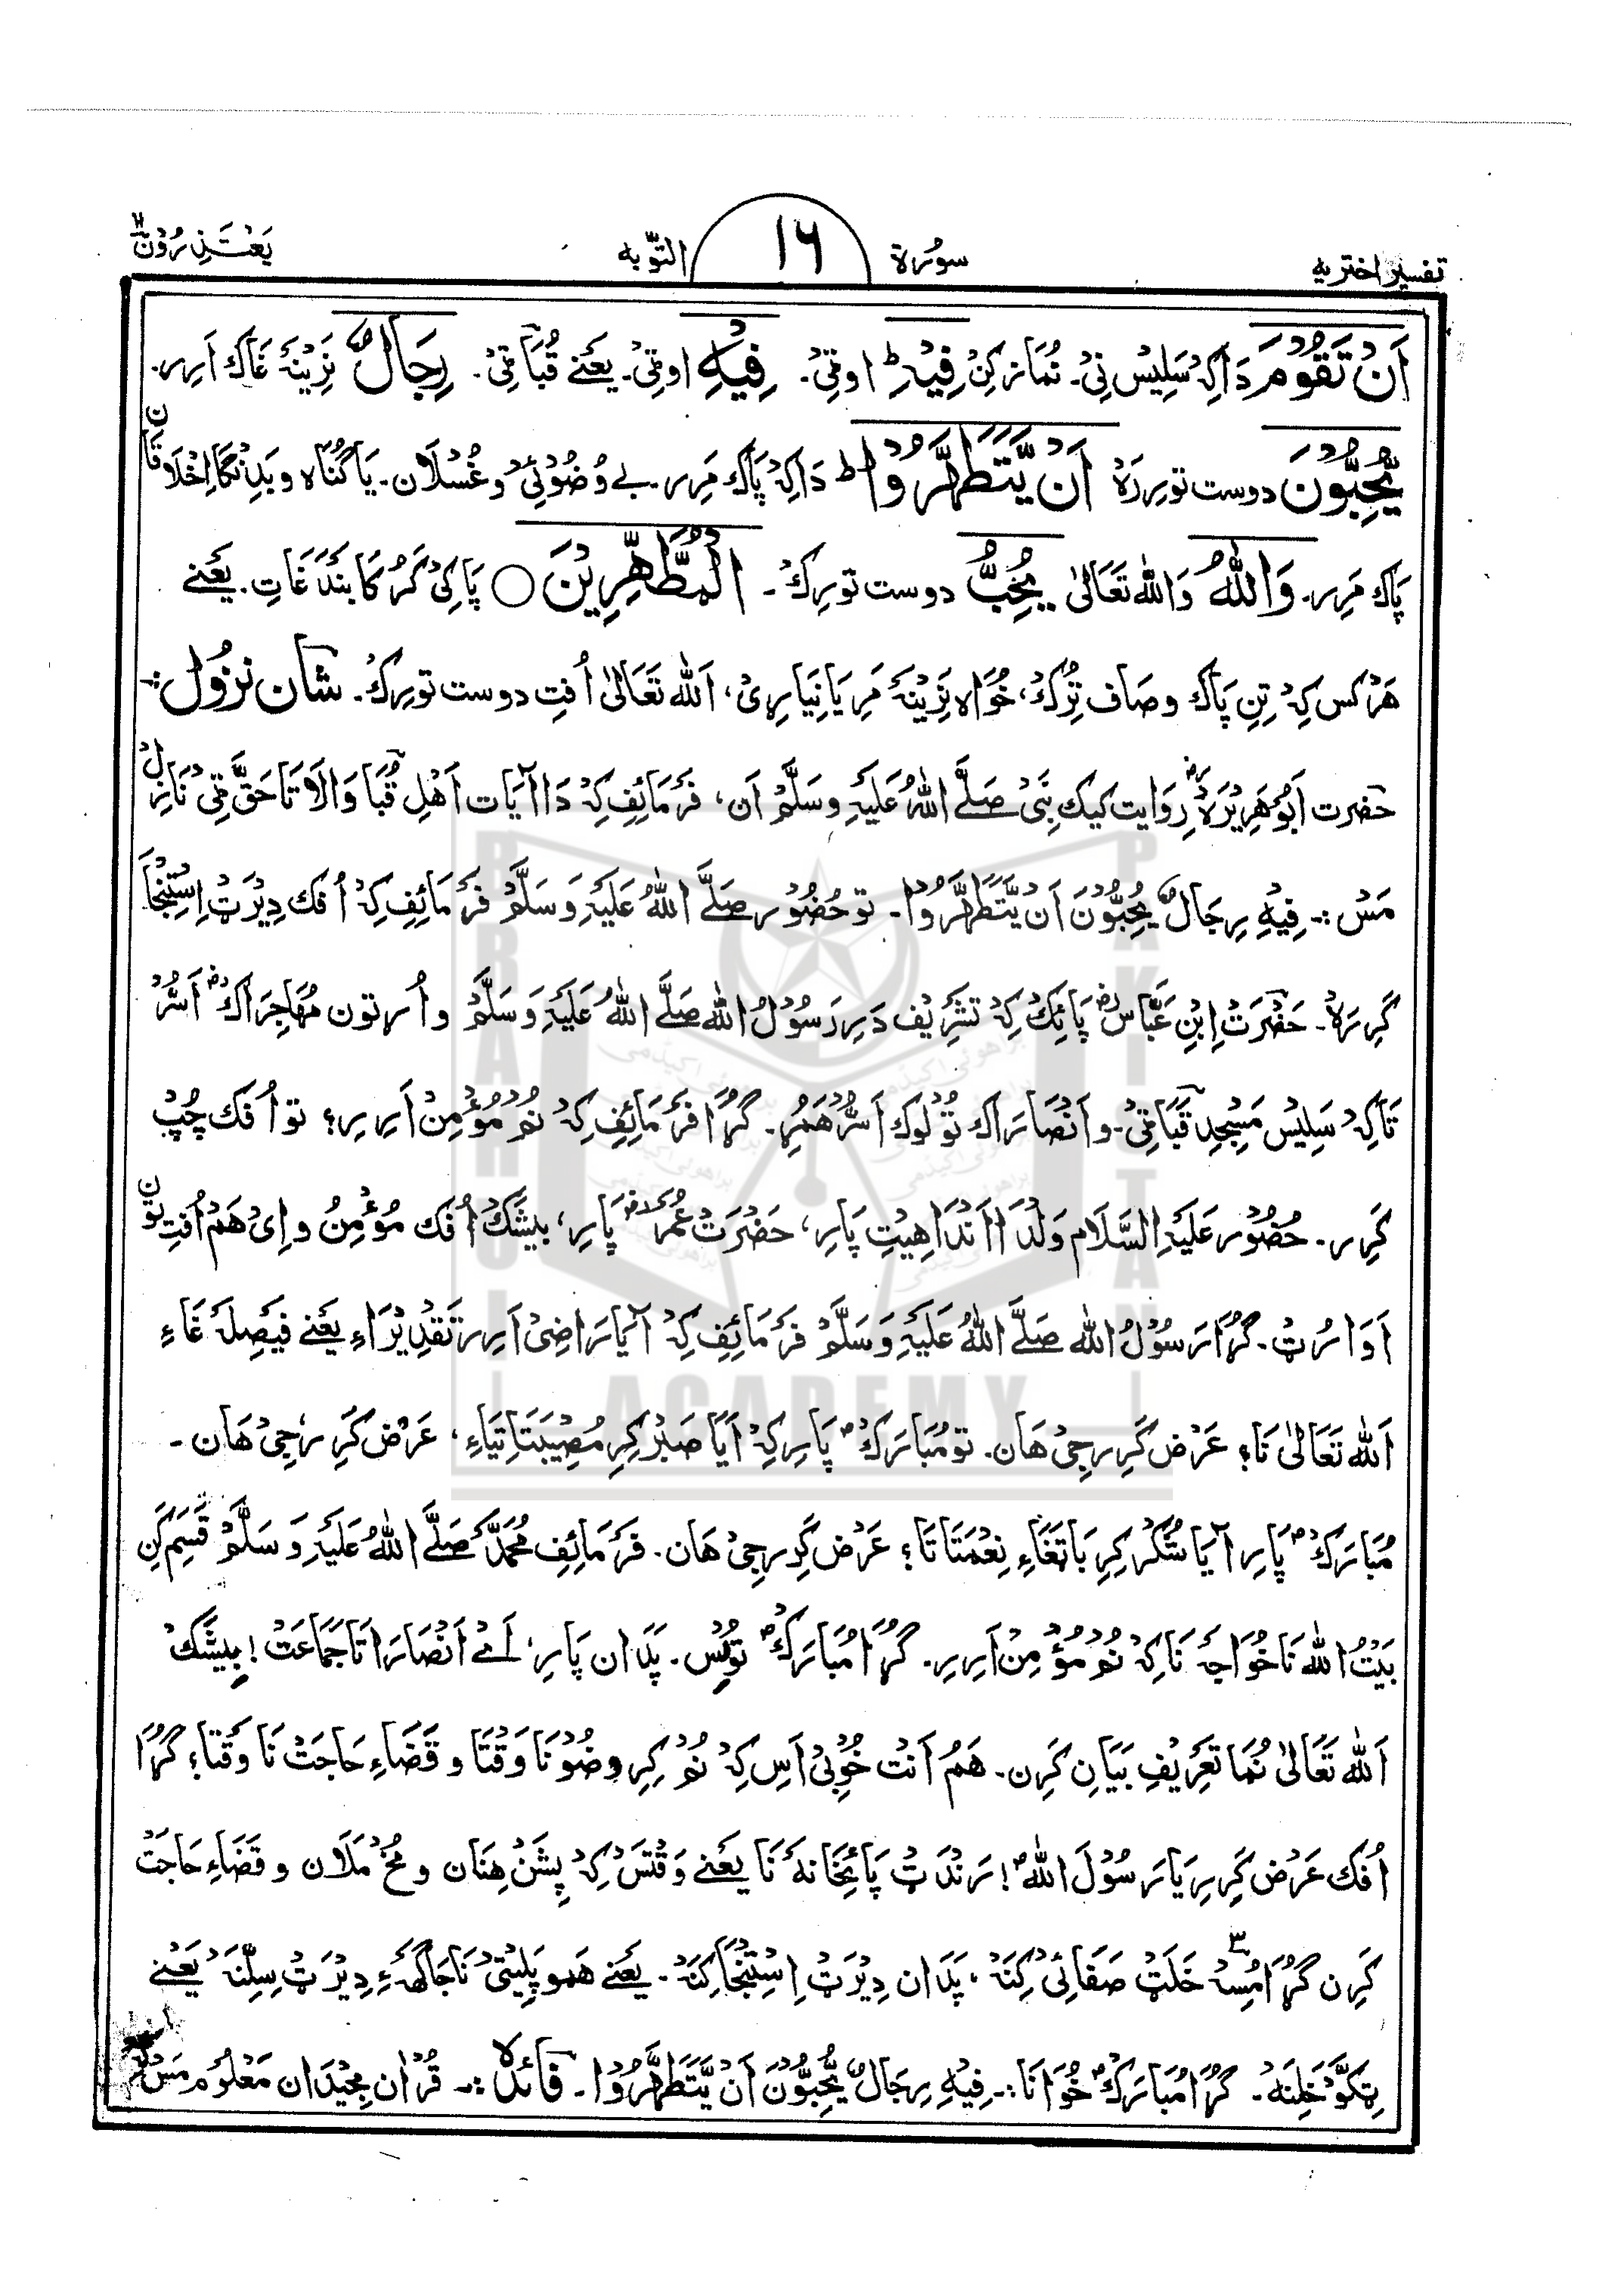 تفسیر اختریہ
سُورۃ
١٦
التّوبہ
یَعْتَذِرُوْنَ ١١
اَنْ تَقُوْمَ دَاکِہْ سَلِیْس نِیْ۔ نُمَاز کِنْ فِیْہِ ؕ اوٹیْ۔ فِیْہِ اوٹیْ۔ یَعْنے قُبَا ٹیْ۔ رِجَالٌ نَرِیْنَہ غَاک اَرِر۔
یُّحِبُّوْنَ دوست توِررَہْ اَنْ یَّتَطَہَّرُوْا ؕ دَاکِہْ پَاک مَرِر۔ بے وُضُوْئیْ و غُسْلَان۔ یَا گُنَاہ و بَدِنْگَا اِخْلَاقَان
پَاک مَرِر۔ وَاللّٰہُ وَاللّٰہ تَعَالیٰ یُحِبُّ دوست توِرِکْ۔ الْمُطَّہِّرِیْنَ ○ پَاکِیْ کَرُکَا بَنْدَغَاتِ۔ یَعْنے
ہَرْکَس کِہْ تِنِ پَاک و صَاف تِرِکْ، خُوَاہ نَرِیْنَہ مَرِ یَا نِیَارِیْ، اَللّٰہ تَعَالیٰ اُفتِ دوست توِرِکْ۔ شَانِ نُزُول :۔
حَضرت اَبُوْہَرِیْرَہْؓ رِوَایت کیک نَبِیْ صَلَّے اللّٰہُ عَلَیْہِ وسَلَّمْ اَن، فَرْمَائِفِ کِہْ دَا آیَات اَہْلِ قُبَا وَالَا تَا حَقَّ ٹیْ نَازِلْ
مَسْ :۔ فِیْہِ رِجَالٌ یُّحِبُّوْنَ اَنْ یَّتَطَہَّرُوْا۔ تو حُضُوْر صَلَّے اللّٰہُ عَلَیْہِ وَسَلَّمْ فَرْمَائِفِ کِہْ اُفک دِیْرَٹْ اِسْتِنْجَا
گِررَہْ۔ حَضْرَتْ اِبْنِ عَبَّاسؓ پَائِکْ کِہْ تشْرِیْف دَرِ رَسُوْلُ اللّٰہ صَلَّے اللّٰہُ عَلَیْہِ وَسَلَّمْ و اُرتون مُہَاجِرَاکْؓ اَسُّرْ
تَاکِہْ سَلِیْس مَسْجِدِ قُبَا ٹیْ۔ و اَنْصَارَاک تُوْلُوک اَسُّرْ ہَمُرْ۔ گُڑَا فَرْمَائِفِ کِہْ نُمْ مُؤْمِنْ اَرِرِ؟ تو اُفک چُپْ
کَرِر۔ حُضُوْر عَلَیْہِ السَّلَام وَلْدَا اَنْدَا ہِیْتِ پَارِ، حَضْرَتْ عُمَرْؓ پَارِ، بیشَکْ اُفک مُؤْمِنُ و اِیْ ہَمْ اُفتِتونْ
اَوَارُٹْ۔ گُڑَا رَسُوْلُ اللّٰہ صَلَّے اللّٰہُ عَلَیْہِ وَسَلَّمْ فَرْمَائِفِ کِہْ آیَا رَاضِیْ اَرِر تَقْدِیْرَاءِ یَعْنے فَیْصِلَہ غَاءِ
اَللّٰہ تَعَالیٰ نَا؟ عَرْض کَرِر جِیْ ہَان۔ تو مُبَارَکْؐ پَارِ کِہْ آیَا صَبْر کِرِ مُصِیْبَتَاتِیَاءِ، عَرْض کَرِر جِیْ ہَان۔
مُبَارَکْؐ پَارِ آیَا شُکْر کِرِ بَاتَغَاءِ نِعْمَتَاتَا؟ عَرْض کَرِر جِیْ ہَان۔ فَرْمَائِفِ مُحَمَّدْ صَلَّے اللّٰہُ عَلَیْہِ وَسَلَّمْ قَسَم کِنِ
بَیْتُ اللّٰہ نَا خُوَاجَہ نَا کِہْ نُمْ مُؤْمِنْ اَرِرِ۔ گُڑَا مُبَارَکْؐ تُوْس۔ پَدَان پَارِ، اَے اَنْصَارَاتَا جَمَاعَتْ! بیشَکْ
اَللّٰہ تَعَالیٰ نُمَا تعْرِیْفِ بَیَانِ کَرِن۔ ہَمْ اَنْت خُوْبِیْ اَسِ کِہْ نُمْ کِرِ وضُوْ نَا وَقْتَا و قَضَاءِ حَاجَتْ نَا وَقْتَا؟ گُڑَا
اُفک عَرْض کَرِر یَا رَسُوْلَ اللّٰہؐ! رَنْدَٹْ پَائِخَانَہ نَا یَعْنے وَقْتَس کِہْ پِشَنْ ہِنَان و مُخْ مَلَان و قَضَاءِ حَاجَتْ
کَرِن گُڑَا مُسِہْ ٣ خَلَٹْ صَفَائِیْ کِنَہْ، پَدَان دِیْرَٹْ اِسْتِنْجَا کِنَہْ۔ یَعْنے ہَمو پَلِیْتِیْ نَا جَاگَہ ءِ دِیْرَٹْ سِلِّنَہْ یَعْنے
تِکَّوْ خَلِنَہْ۔ گُڑَا مُبَارَکْؐ خُوَانَا :۔ فِیْہِ رِجَالٌ یُّحِبُّوْنَ اَنْ یَّتَطَہَّرُوْا۔ فَائدہ :۔ قُرْانِ مَجِیْدَان مَعْلُوْم مَسْ کِہْ
BRAHUI ACADEMY PAKISTAN
براہوئی اکیڈمی